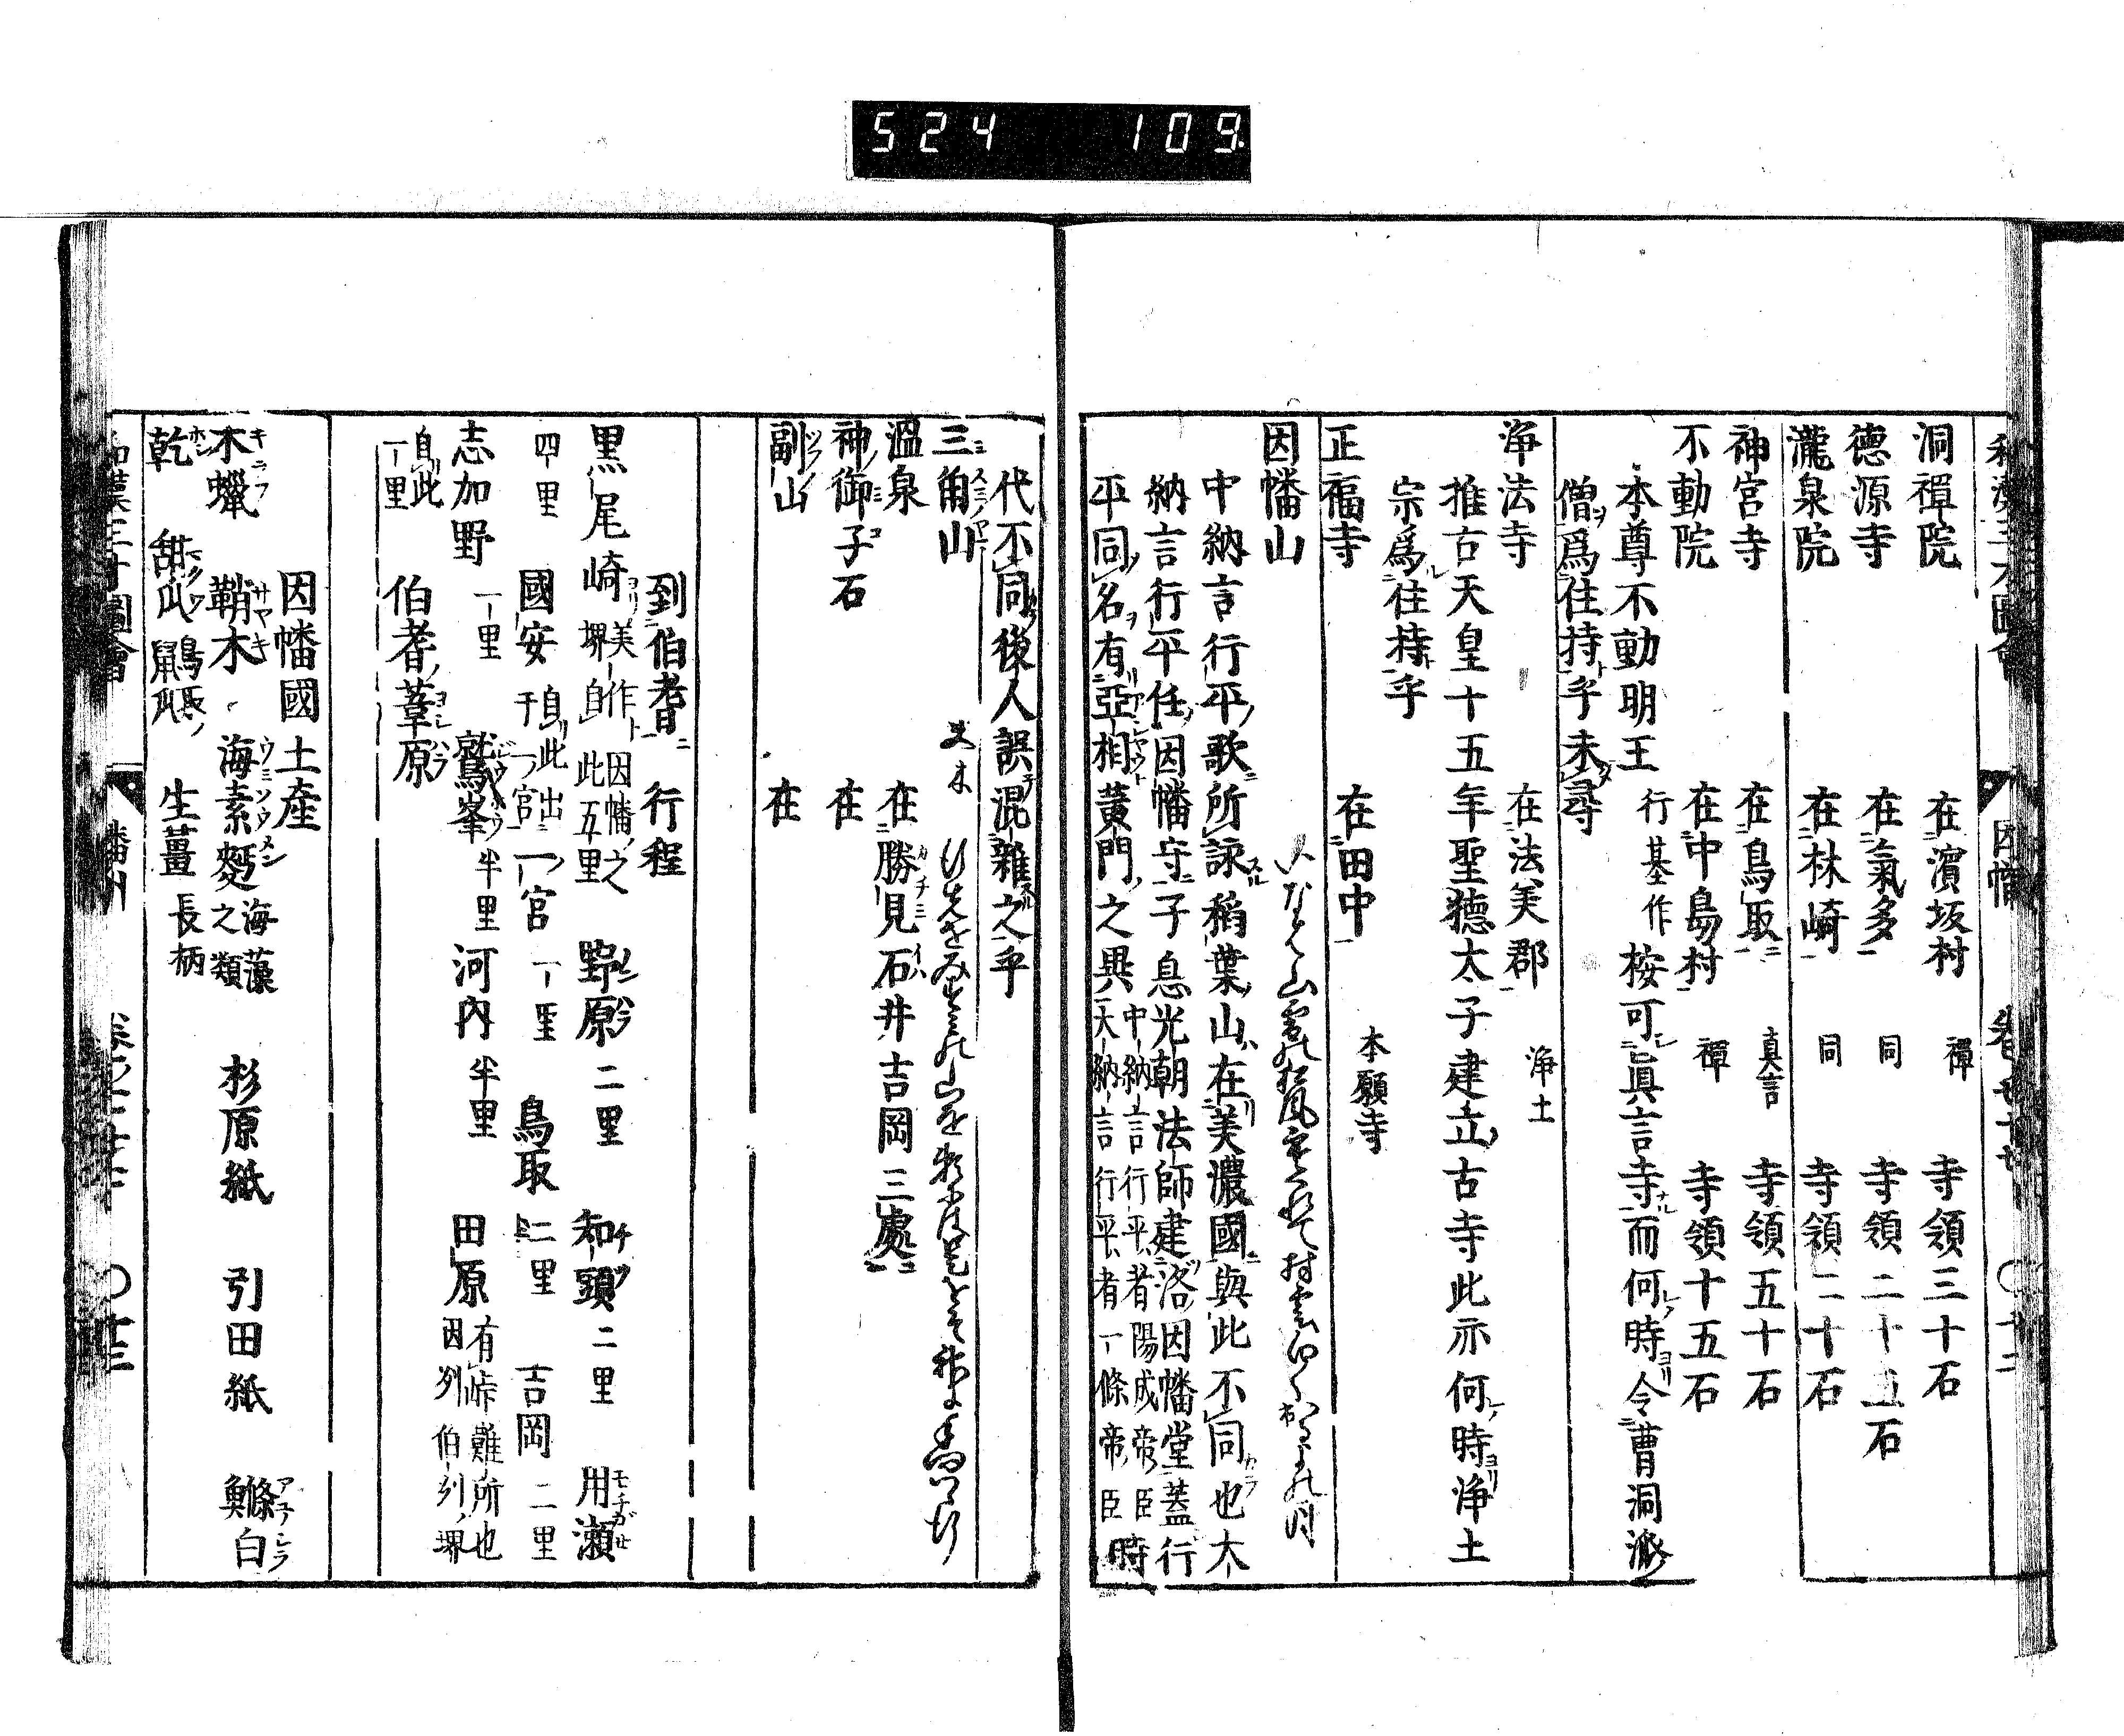 524 109
和漢三才圖會 因幡 卷七十七 〇十二
洞禪院 在濱坂村 禪 寺領三十石
德源寺 在氣多 同 寺領二十五石
瀧泉院 在林崎 同 寺領二十石
神宮寺 在鳥取 真言 寺領五十石
不動院 在中島村 禪 寺領十五石
本尊不動明王 行基作 桉可眞言寺而何時令曹洞派
僧爲住持乎未尋
淨法寺 在法美郡 淨土
推古天皇十五年聖德太子建立古寺此亦何時淨土
宗爲住持乎
正福寺 在田中 本願寺
因幡山
中納言行平歌所詠稻葉山在美濃國與此不同也大
納言行平任因幡守子息光朝法師建洛因幡堂蓋行
平同名有亞相黃門之異 中納言行平者陽成帝臣 大納言行平者一條帝臣 時
代不同後人誤混雜之乎
三角山
溫泉 在勝見石井吉岡三處
神御子石 在
副山 在
到伯耆行程
黑尾崎 美作因幡之堺自此五里 野原 二里 和頭 二里 用瀨
四里 國安 自此出于一宮 一宮 一里 鳥取 二里 吉岡 二里
志加野 一里 鷲峯 半里 河內 半里 田原 有峠難所也因刕伯刕堺
自此一里 伯耆葦原
因幡國土産
木蠟 鞘木 海素麪 海藻之類 杉原紙 引田紙 鰷白
乾 生薑 長柄